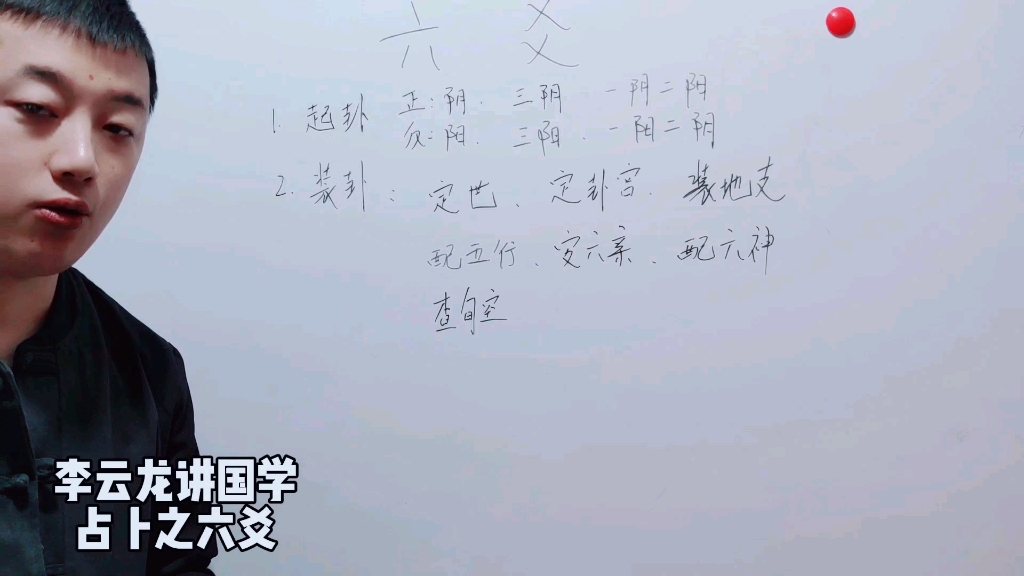 六 爻
1. 起卦 正:阴. 三阴 一阴二阴
反:阳. 三阳. 一阳二阴
2. 装卦: 定世、定卦宫. 装地支
配五行、安六亲、配六神
查旬空
李云龙讲国学
占卜之六爻